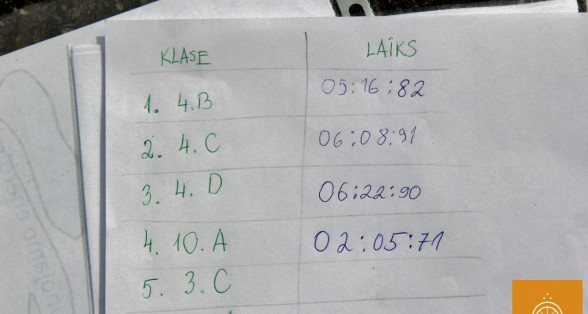 KLASE LAIKS
1. 4.B 05:16:82
2. 4.C 06:08:91
3. 4.D 06:22:90
4. 10.A 02:05:71
5. 3.C